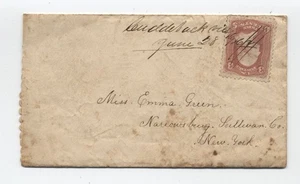 Cuddebackville
June 28
Miss. Emma Green.
Narrowsburg. Sullivan Co.
New York